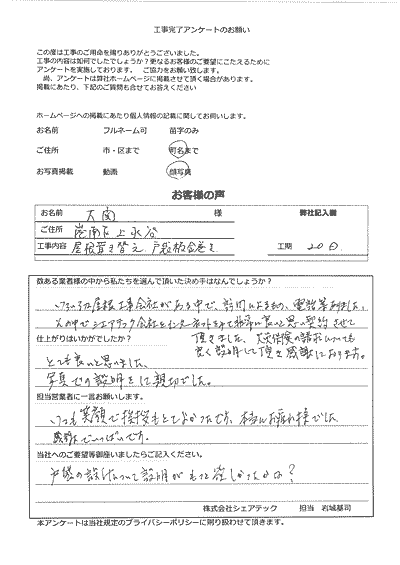 工事完了アンケートのお願い
この度は工事のご用命を賜りありがとうございました。
工事の内容は如何でしたでしょうか？更なるお客様のご要望にこたえるために
アンケートを実施しております。 ご協力をお願い致します。
尚、アンケートは弊社ホームページに掲載させて頂く場合があります。
掲載にあたり、下記のご質問も合せてお答えください
ホームページへの掲載にあたり個人情報の記載に関してお伺いします。
お名前 フルネーム可 苗字のみ
ご住所 市・区まで 町名まで
お写真掲載 動画 顔写真
お客様の声
お名前 大園 様 弊社記入欄
ご住所 港南区上永谷
工事内容 屋根葺き替え、戸袋板金巻き 工期 20日
数ある業者様の中から私たちを選んで頂いた決め手はなんでしょうか？
いろいろ屋根工事会社がある中で、訪問によるもの、電話等ありました。
その中でシェアテック会社をインターネットをみて
良いと思い契約させて
仕上がりはいかがでしたか？ 頂きました、火災保険の請求についても
良く説明して頂き感謝しております。
とても良いと思いました、
写真での説明をして親切でした。
担当営業者に一言お願いします。
いつも笑顔で挨拶もとてもよかったです、本当にお疲れ様でした
感謝でいっぱいです。
当社へのご要望等御座いましたらご記入ください。
戸袋の
について説明がもっと欲しかったかな？
株式会社シェアテック 担当 岩城基司
本アンケートは当社規定のプライバシーポリシーに則り扱わせて頂きます。